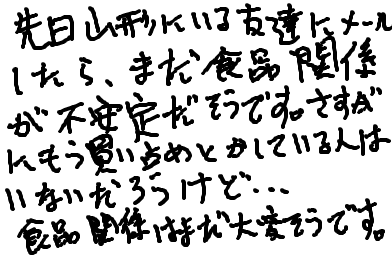 先日山形にいる友達にメール
したら、まだ食品関係
が不安定だそうです。さすが
にもう買い占めとかしている人は
いないだろうけど…
食品関係はまだ大変そうです。